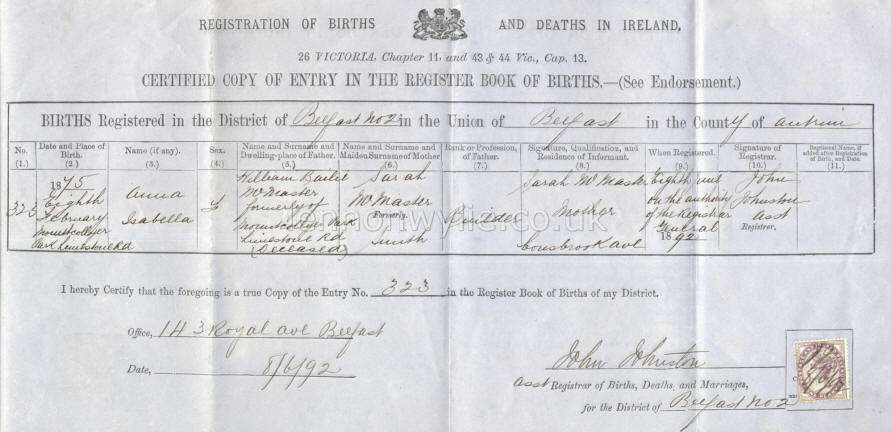 REGISTRATION OF BIRTHS AND DEATHS IN IRELAND,
26 VICTORIA, Chapter 11, and 43 & 44 Vic., Cap. 13.
CERTIFIED COPY OF ENTRY IN THE REGISTER BOOK OF BIRTHS.—(See Endorsement.)
BIRTHS Registered in the District of Belfast No 2 in the Union of Belfast in the County of Antrim
No. (1.)
Date and Place of Birth. (2.)
Name (if any). (3.)
Sex. (4.)
Name and Surname and Dwelling-place of Father. (5.)
Name and Surname and Maiden Surname of Mother (6.)
Rank or Profession, of Father. (7.)
Signature, Qualification, and Residence of Informant. (8.)
When Registered. (9.)
Signature of Registrar. (10.)
Baptismal Name, if added after Registration of Birth, and Date. (11.)
323
1875
Eighth
February
Mountcollyer
Park Limestone Rd
Anna
Isabella
F
William
McMaster
formerly of
Mountcollyer Park
Limestone Rd
(Deceased)
Sarah
McMaster
Formerly.
Smith
Builder
Sarah McMaster
Mother
Eighth
on the authority
of the Registrar
General
1892
John
Johnston
asst
Registrar.
jennonwylie.co.uk
I hereby Certify that the foregoing is a true Copy of the Entry No. 323 in the Register Book of Births of my District.
Office, 143 Royal Ave Belfast
Date, 8/6/92
John Johnston
asst Registrar of Births, Deaths, and Marriages,
for the District of Belfast No 2